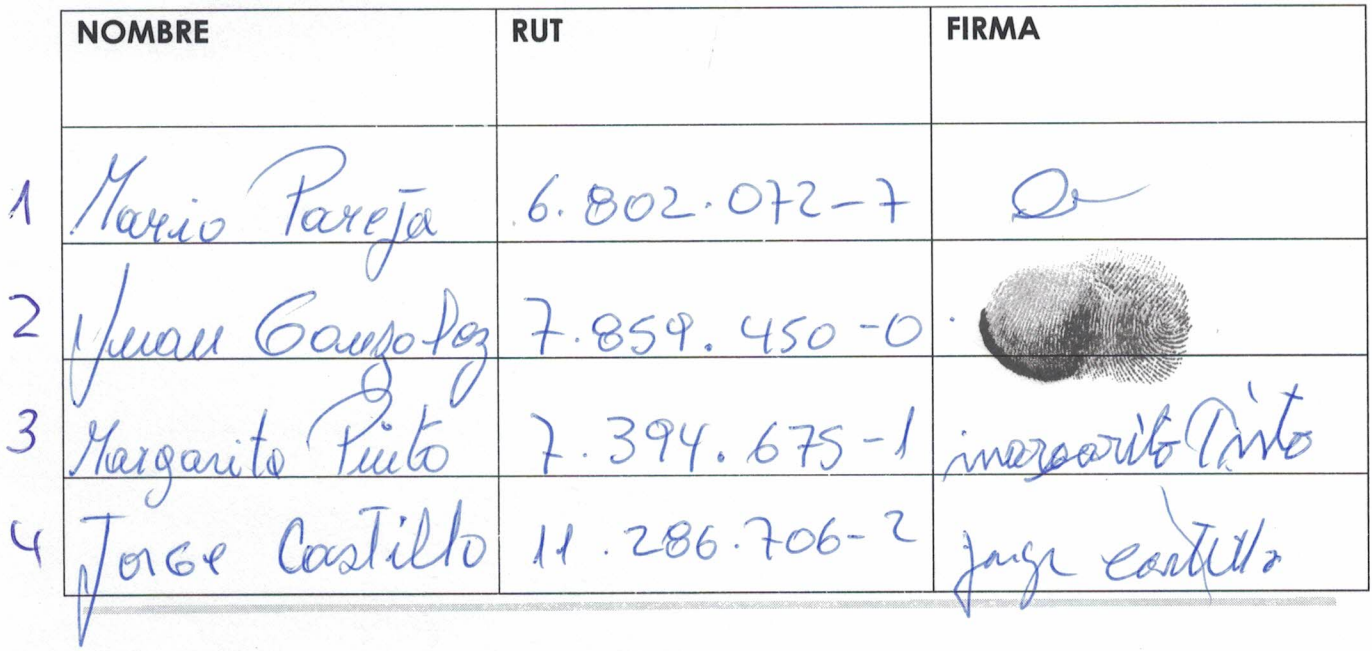 NOMBRE RUT FIRMA
1 Mario Pareja 6.802.072-7
2 Juan Gonzalez 7.859.450-0
3 Margarita Pinto 7.394.675-1 margarita Pinto
4 Jorge Castillo 11.286.706-2 jorge castillo